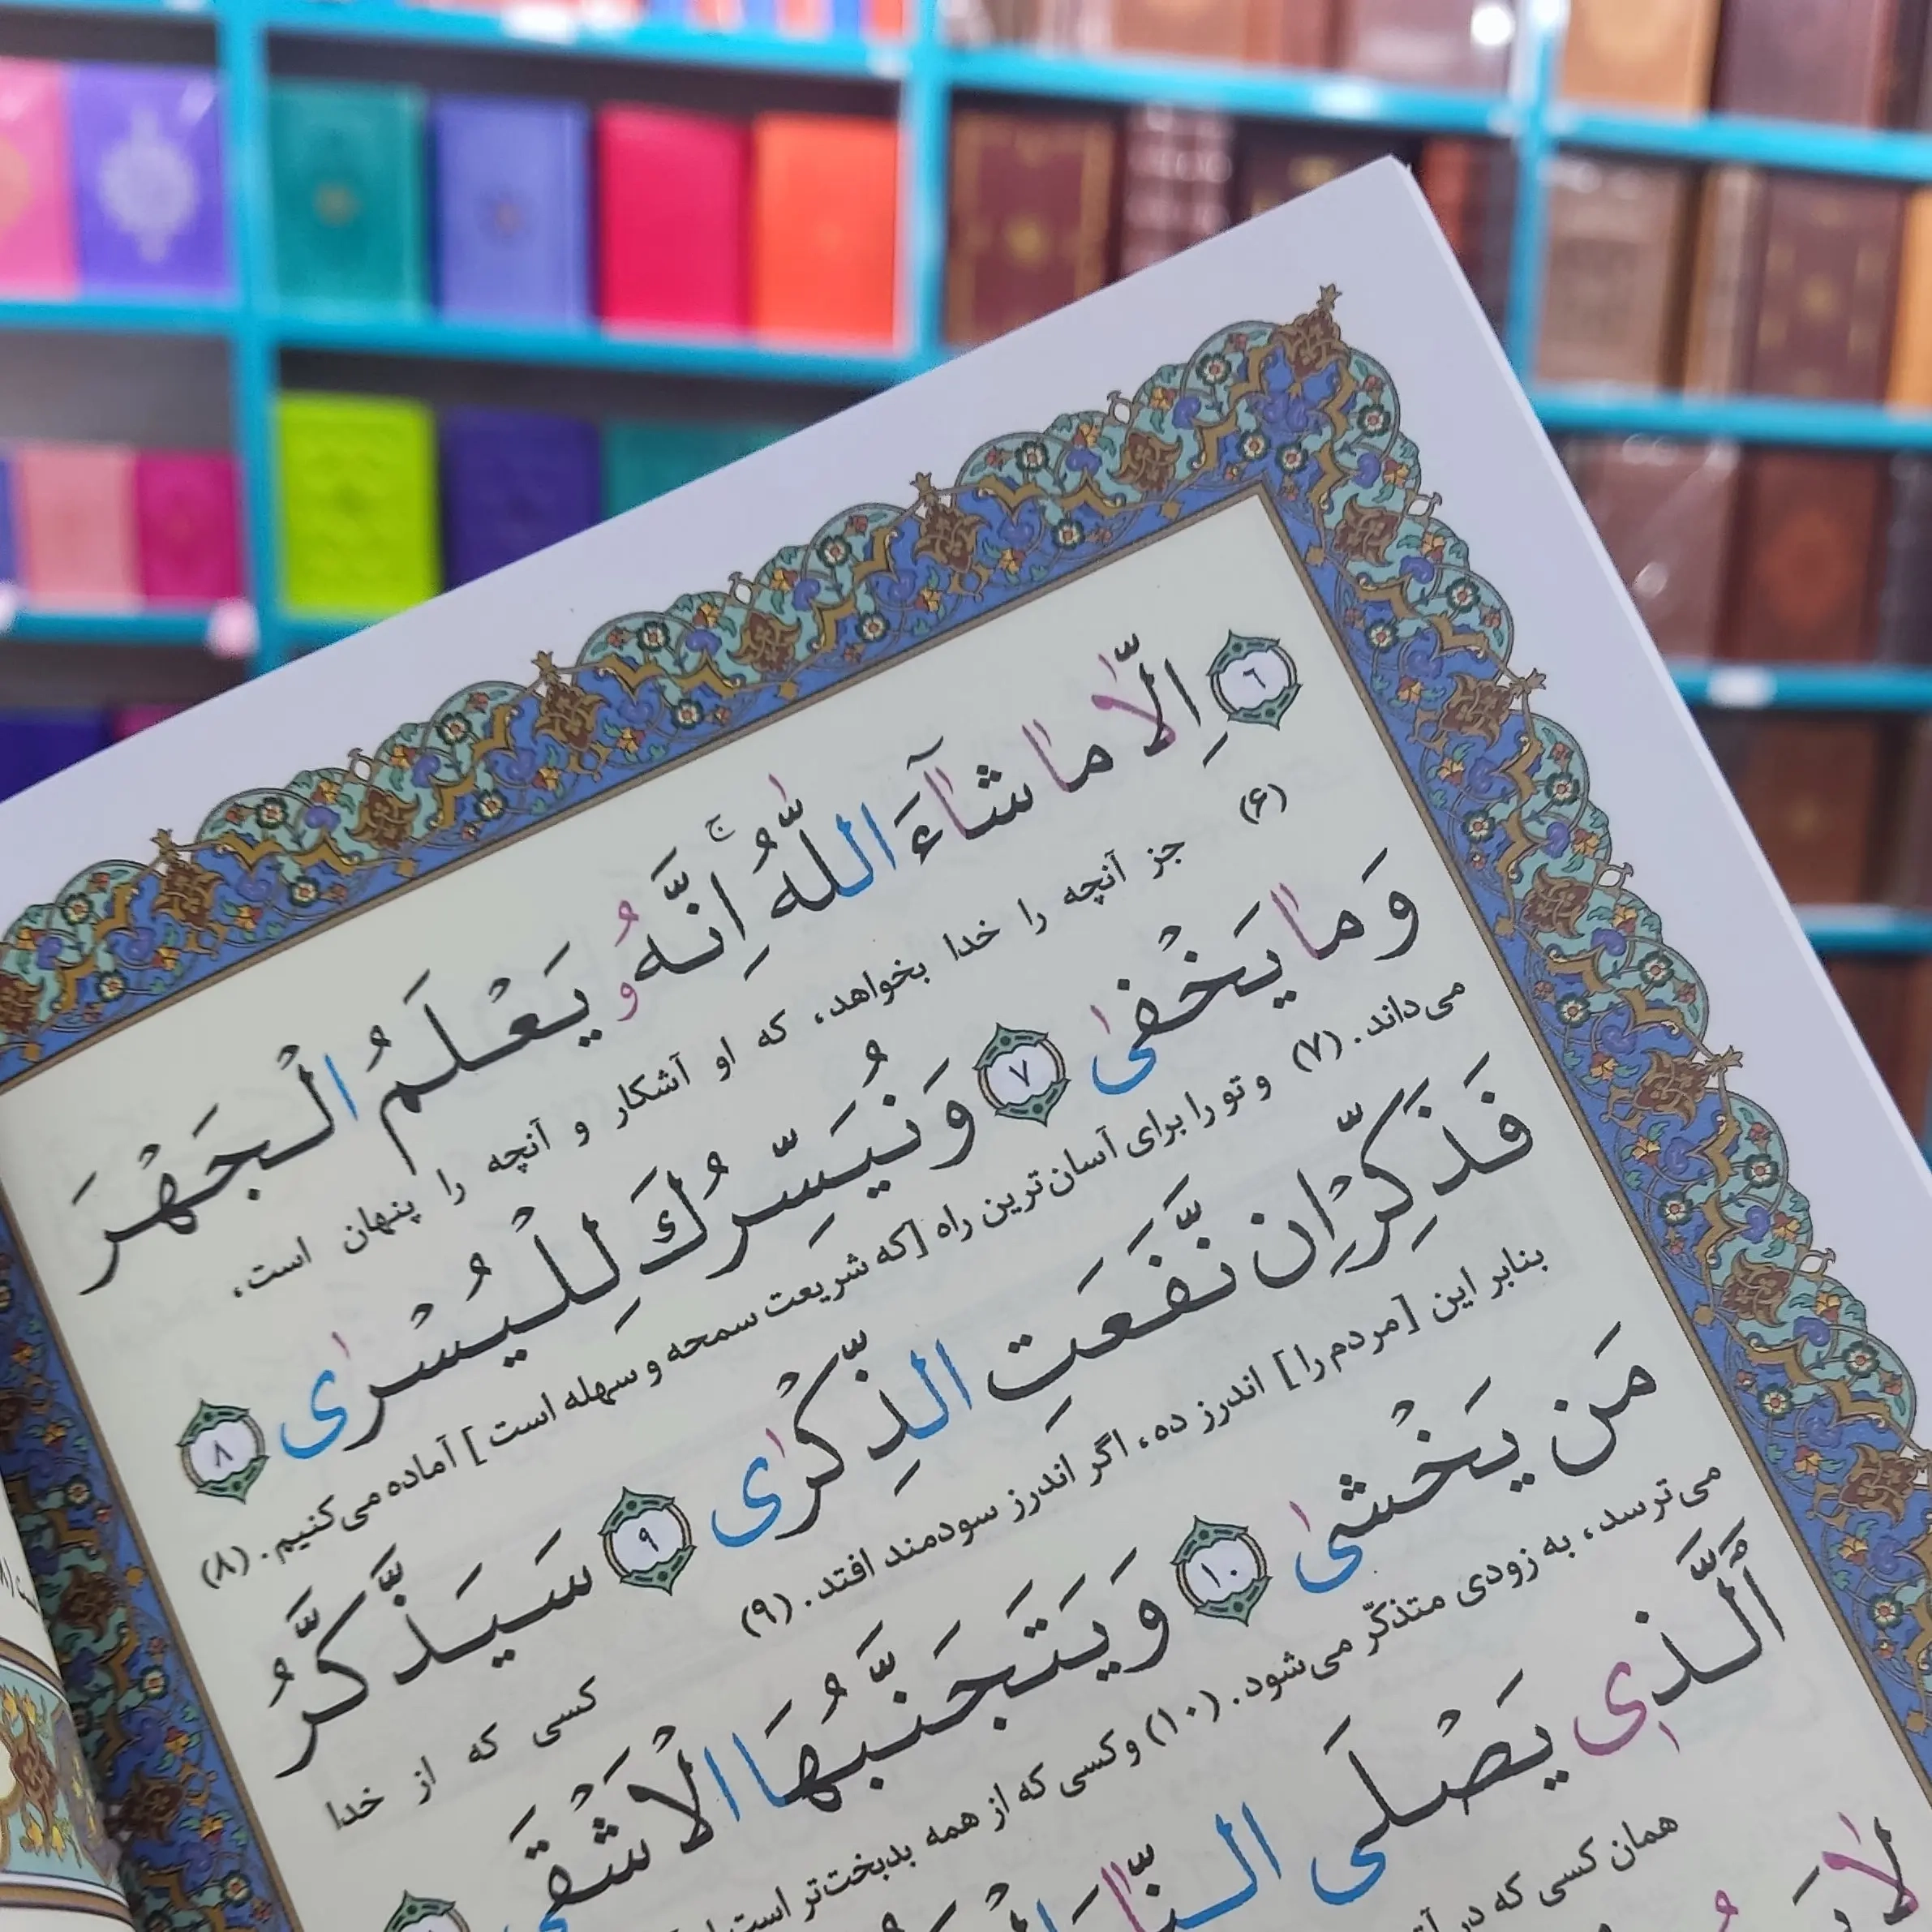 ٦ اِلّٰا مٰا شٰآءَ اللّٰهُ ۚ اِنَّهُو يَعْلَمُ الْجَهْرَ
(۶) جز آنچه را خدا بخواهد، که او آشکار و آنچه را پنهان است،
وَ مٰا يَخْفىٰ ٧ وَ نُيَسِّرُكَ لِلْيُسْرىٰ ٨
می‌داند. (۷) و تو را برای آسان‌ترین راه [که شریعت سمحه و سهله است] آماده می‌کنیم. (۸)
فَذَكِّرْ اِن نَّفَعَتِ الذِّكْرىٰ ٩ سَيَذَّكَّرُ
بنابر این [مردم را] اندرز ده، اگر اندرز سودمند افتد. (۹) کسی که از خدا
مَن يَخْشىٰ ١٠ وَ يَتَجَنَّبُهَا الْاَشْقَى
می‌ترسد، به زودی متذکّر می‌شود. (۱۰) و کسی که از همه بدبخت‌تر است
اَلَّذى يَصْلَى النّٰا
همان کسی که در
لٰا